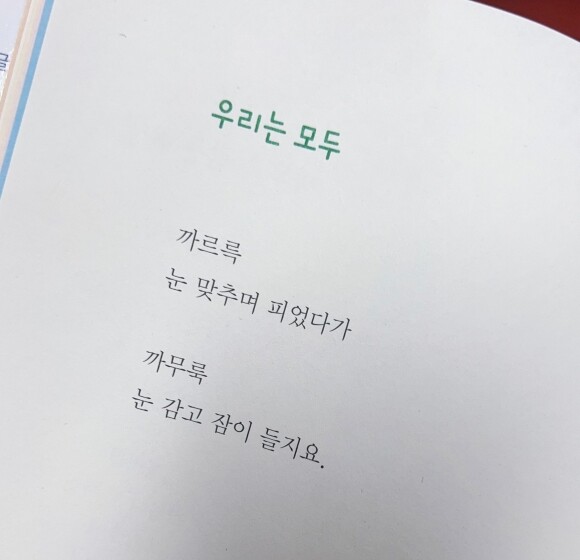 우리는 모두
까르륵
눈 맞추며 피었다가
까무룩
눈 감고 잠이 들지요.